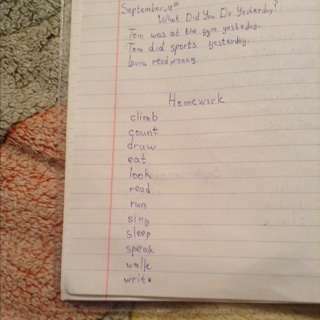 September, 
What Did You Do Yesterday?
Tom was at the gym yesterday.
Tom did sports yesterday.
Homework
climb
count
draw
eat
look
read
run
sing
sleep
speak
walk
write